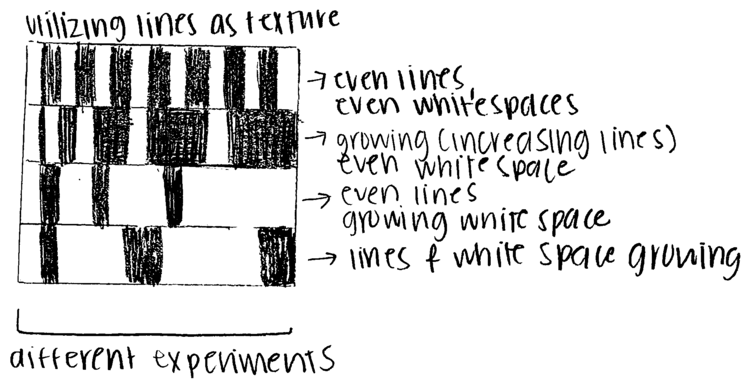 utilizing lines as texture
→ even lines,
even whitespaces
→ growing (increasing lines)
even white space
→ even lines
growing white space
→ lines & white space growing
different experiments